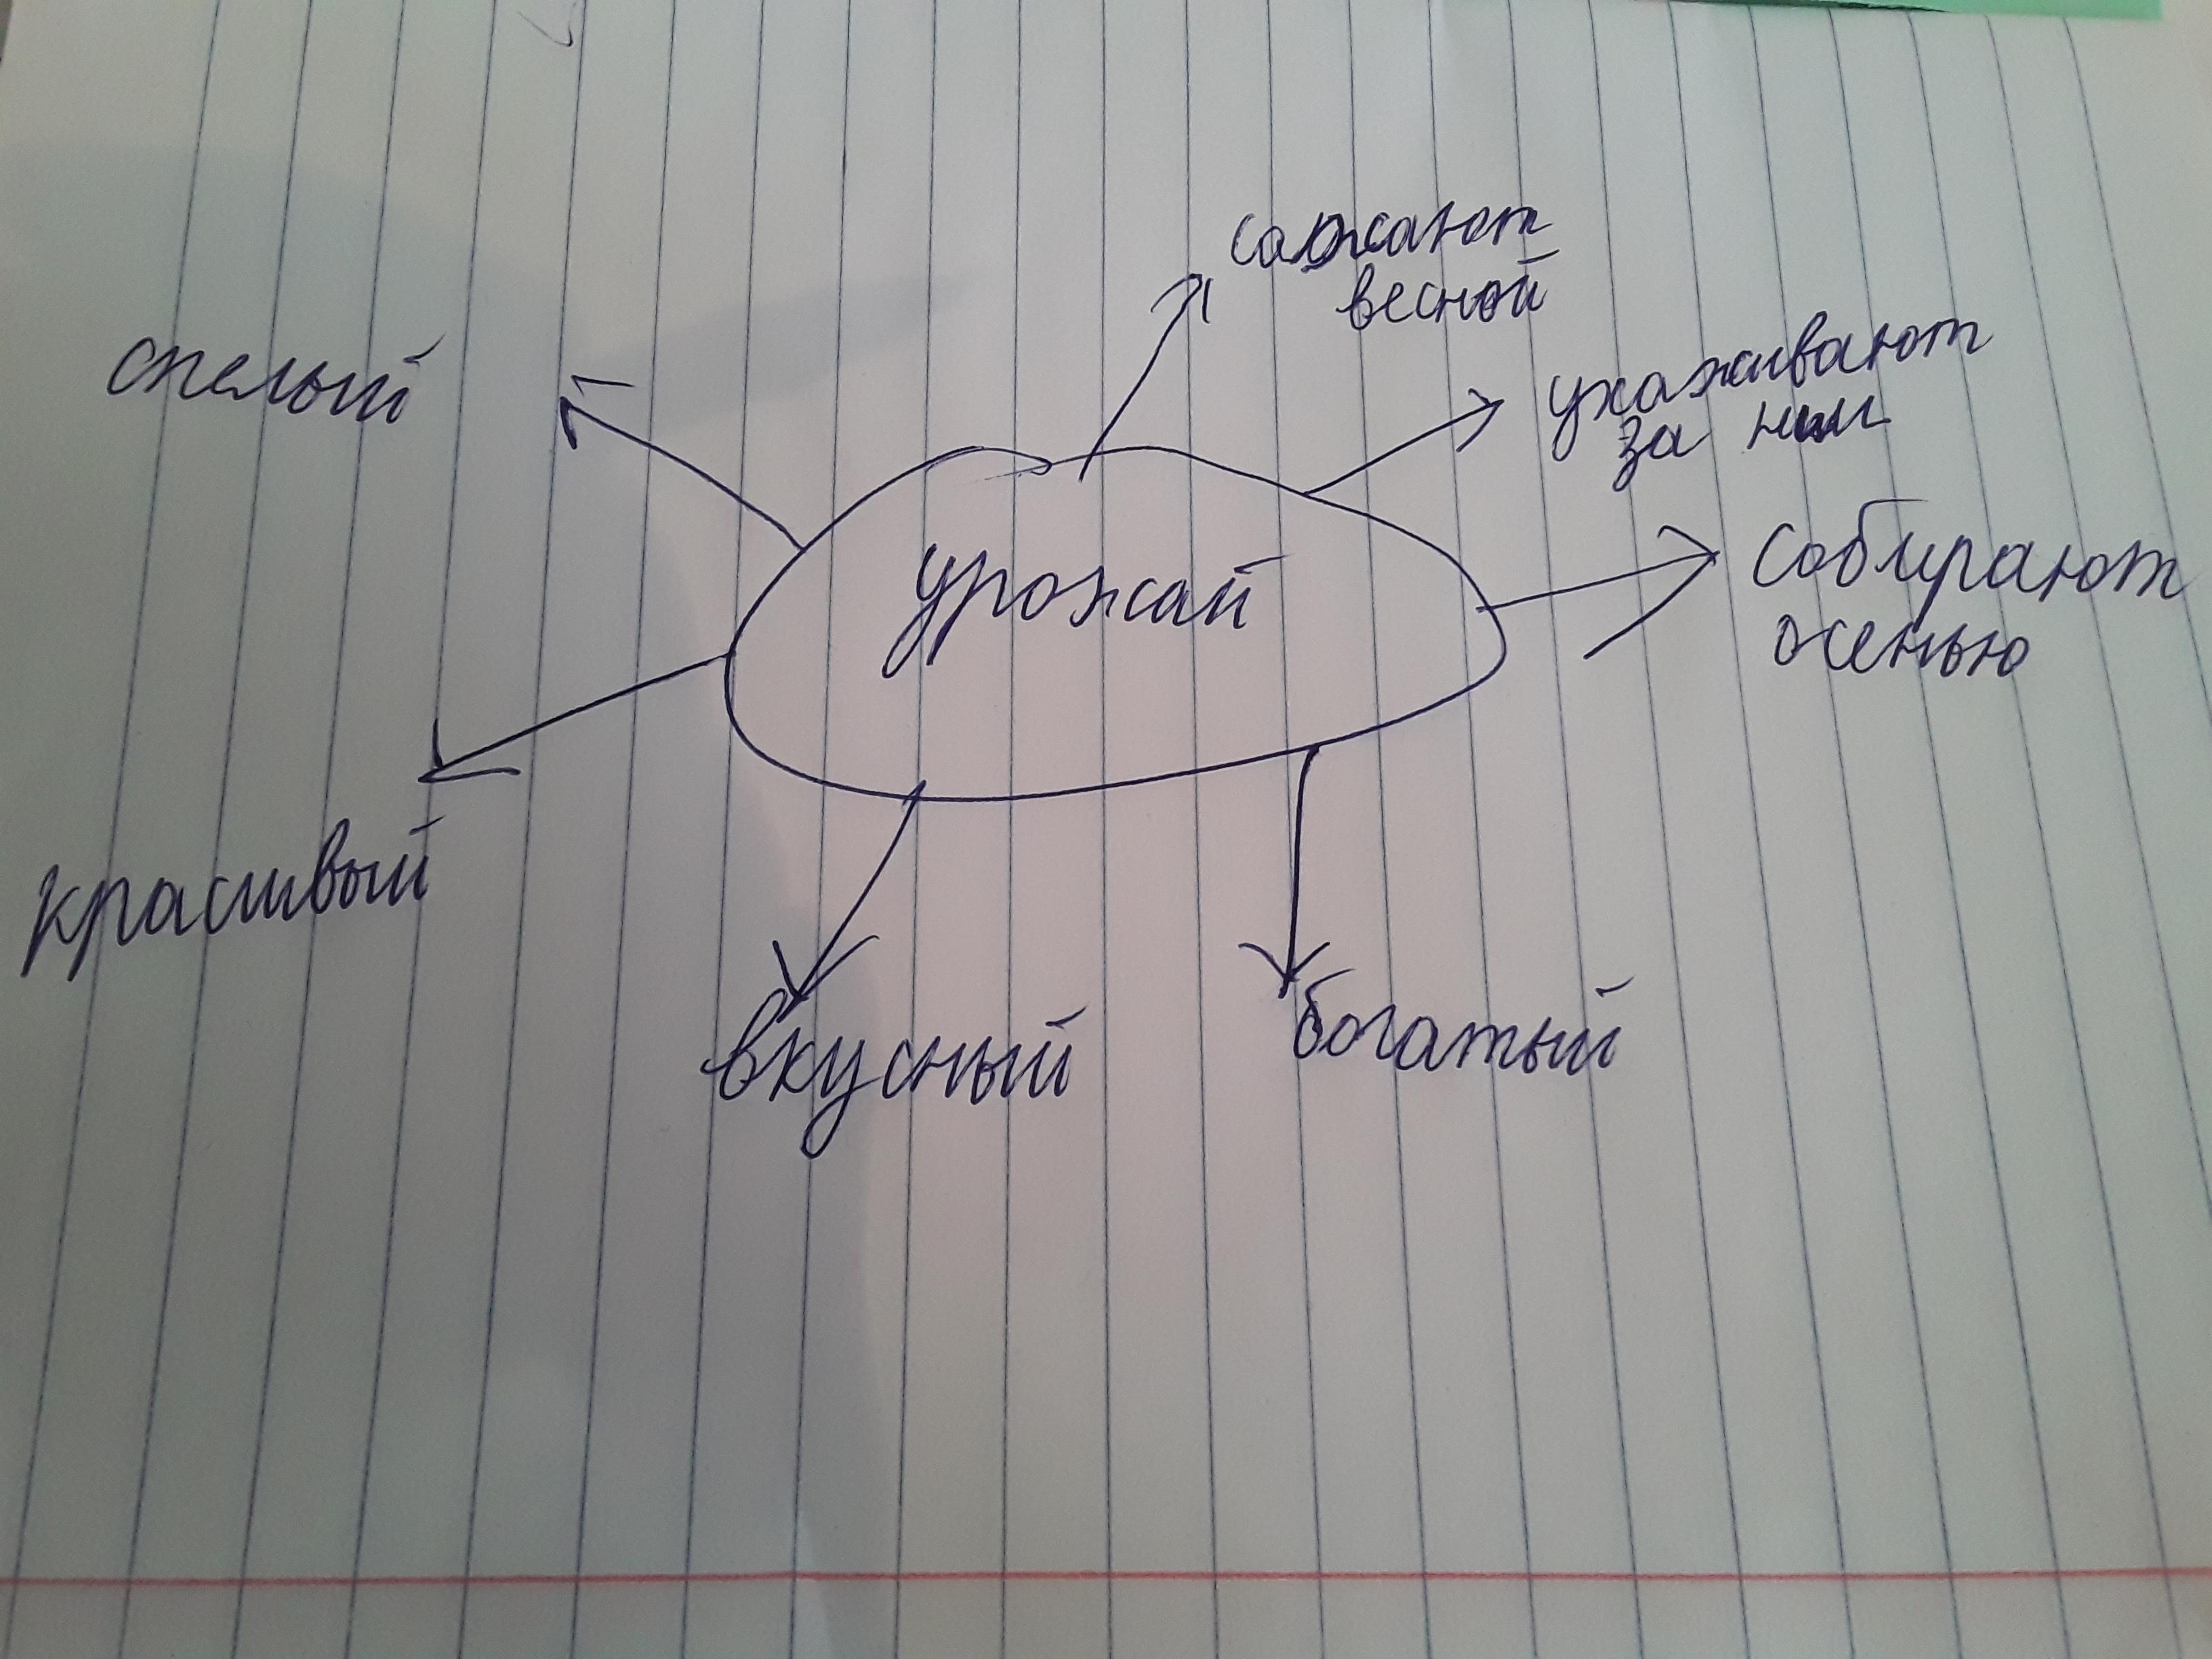 сажают
весной
спелый
ухаживают
за ним
собирают
осенью
урожай
красивый
вкусный
богатый